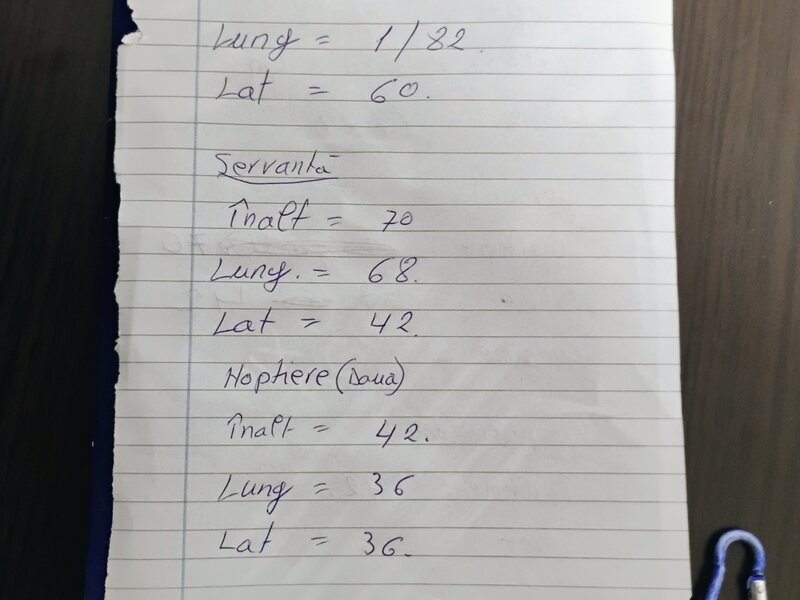 Lung = 1/82.
Lat = 60.
Servantă
Înalt = 70
Lung. = 68.
Lat = 42.
Noptiere (Două)
Înalt = 42.
Lung = 36
Lat = 36.